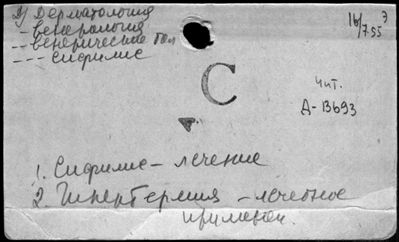 2) Дерматология
- венерология
-- венерические бол
--- сифилис
16/7.55 э
С
Чит.
А-13693
1. Сифилис - лечение
2. Гипертермия - лечебное
применен.